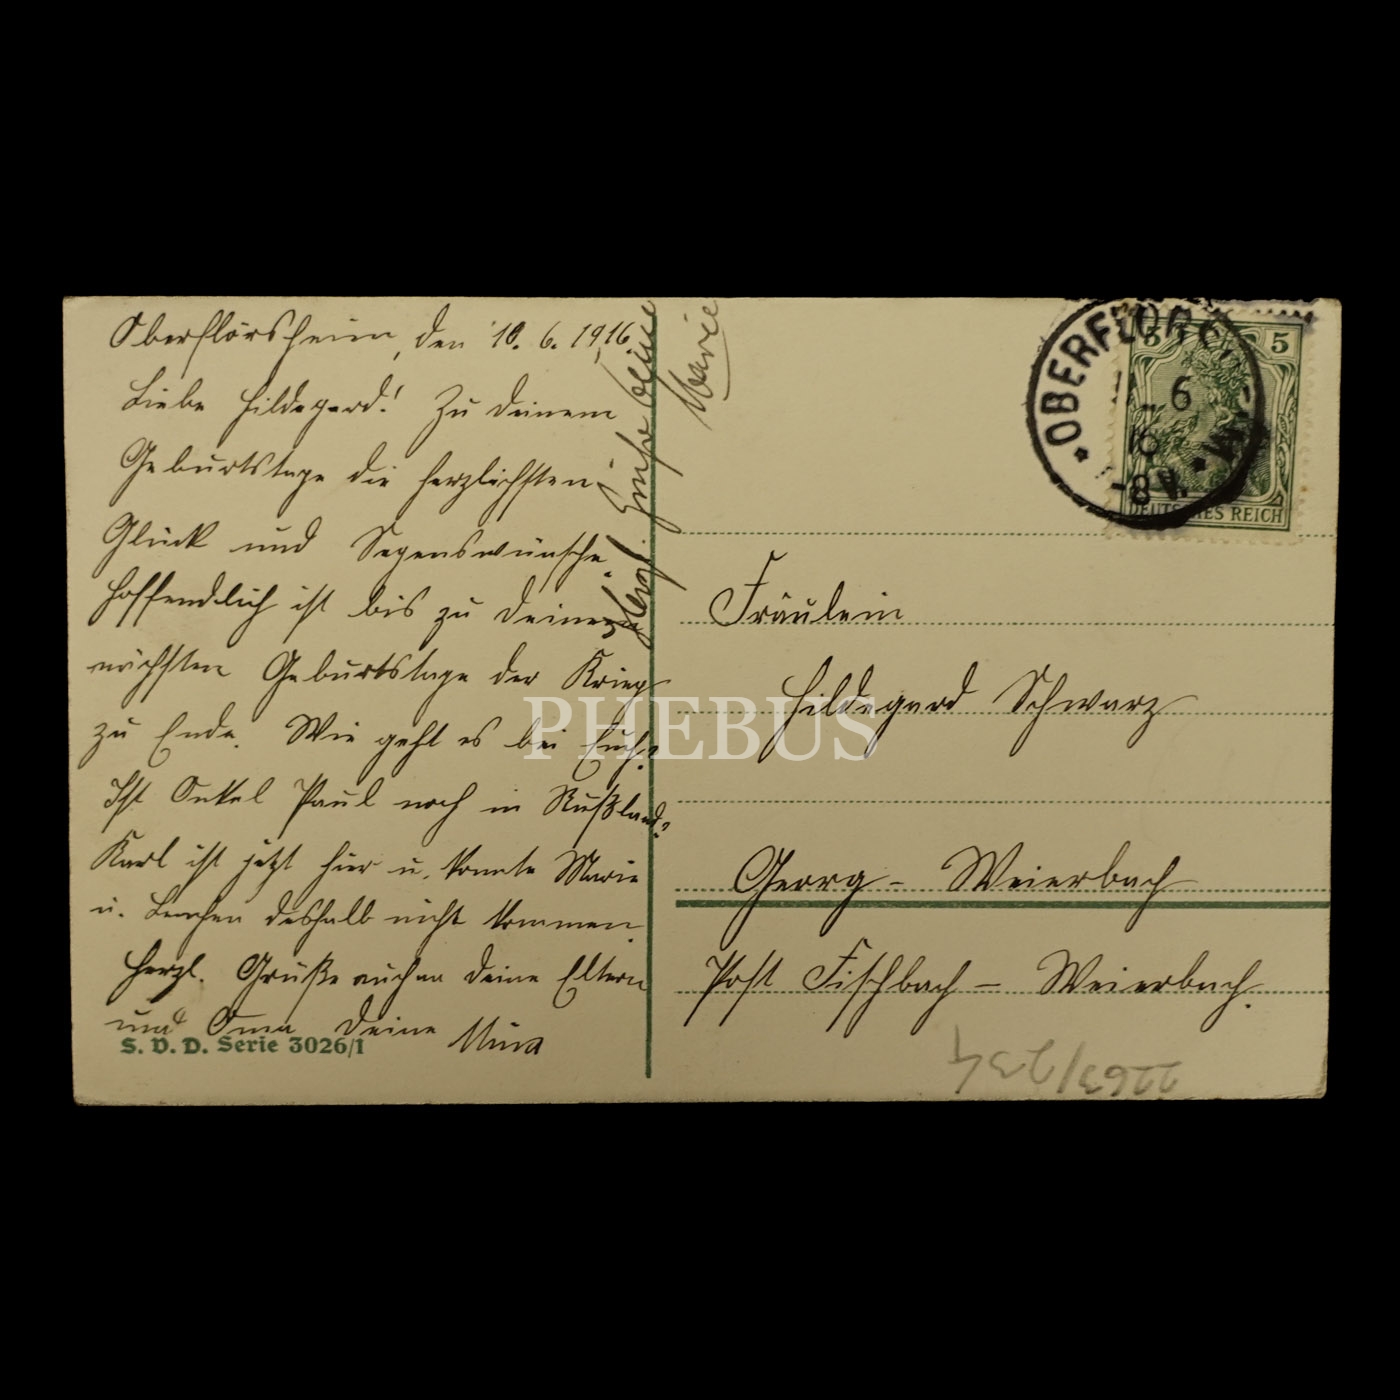 Oberflörsheim, den 10. 6. 1916.
Liebe Hildegard! Zu Deinem
Geburtstage die herzlichsten
Glück und Segenswünsche.
Hoffendlich ist bis zu Deinem
nächsten Geburtstage der Krieg
zu Ende. Wie geht es bei Euch?
Ist Onkel Paul noch in Rußland?
Karl ist jetzt hier u. konnte Marie
u. Lenchen deshalb nicht kommen.
Herzl. Grüße auch an Deine Eltern
und Oma Deine Mina
Herzl. Grüße Deine
Marie
S. V. D. Serie 3026/1
5 5
DEUTSCHES REICH
11 6
16
8-
Fräulein
Hildegard Schwarz
Georg-Weierbach
Post Fischbach-Weierbach.
2263/234
PHEBUS